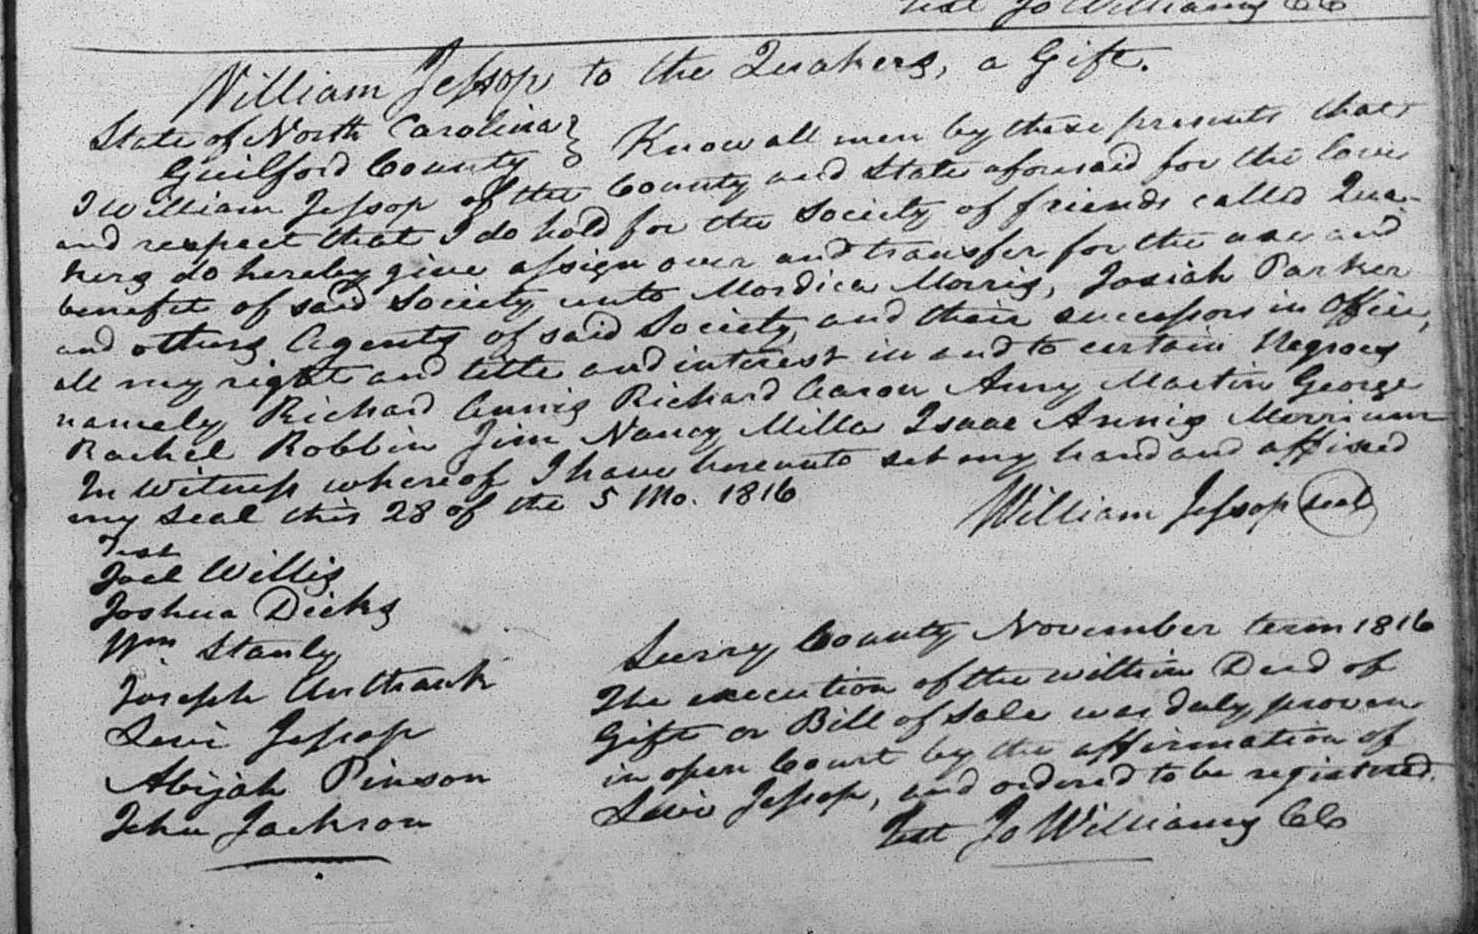 Test Jo Williams CC
William Jessop to the Quakers, a Gift.
State of North Carolina }
Guilford County } Know all men by these presents that
I William Jessop of the County and State aforesaid for the love
and respect that I do hold for the Society of friends called Qua-
kers do hereby give assign over and transfer for the use and
benefit of said Society unto Mordica Morris, Josiah Parker
and others Agents of said Society, and their successors in Office,
all my right and title and interest in and to certain Negroes
namely Richard Annis Richard Aaron Amy Martin George
Rachel Robbin Jim Nancy Milla Isaac Annis Merriam
In Witness whereof I have hereunto set my hand and affixed
my seal this 28 of the 5 Mo. 1816
William Jessop seal
Test
Joel Willis
Joshua Dicks
Wm Stanly
Joseph Unthank
Levi Jessop
Abijah Pinson
John Jackson
Surry County November term 1816
The execution of the within Deed of
Gift or Bill of Sale was duly proven
in open Court by the affirmation of
Levi Jessop, and ordered to be registered.
Test Jo Williams CC